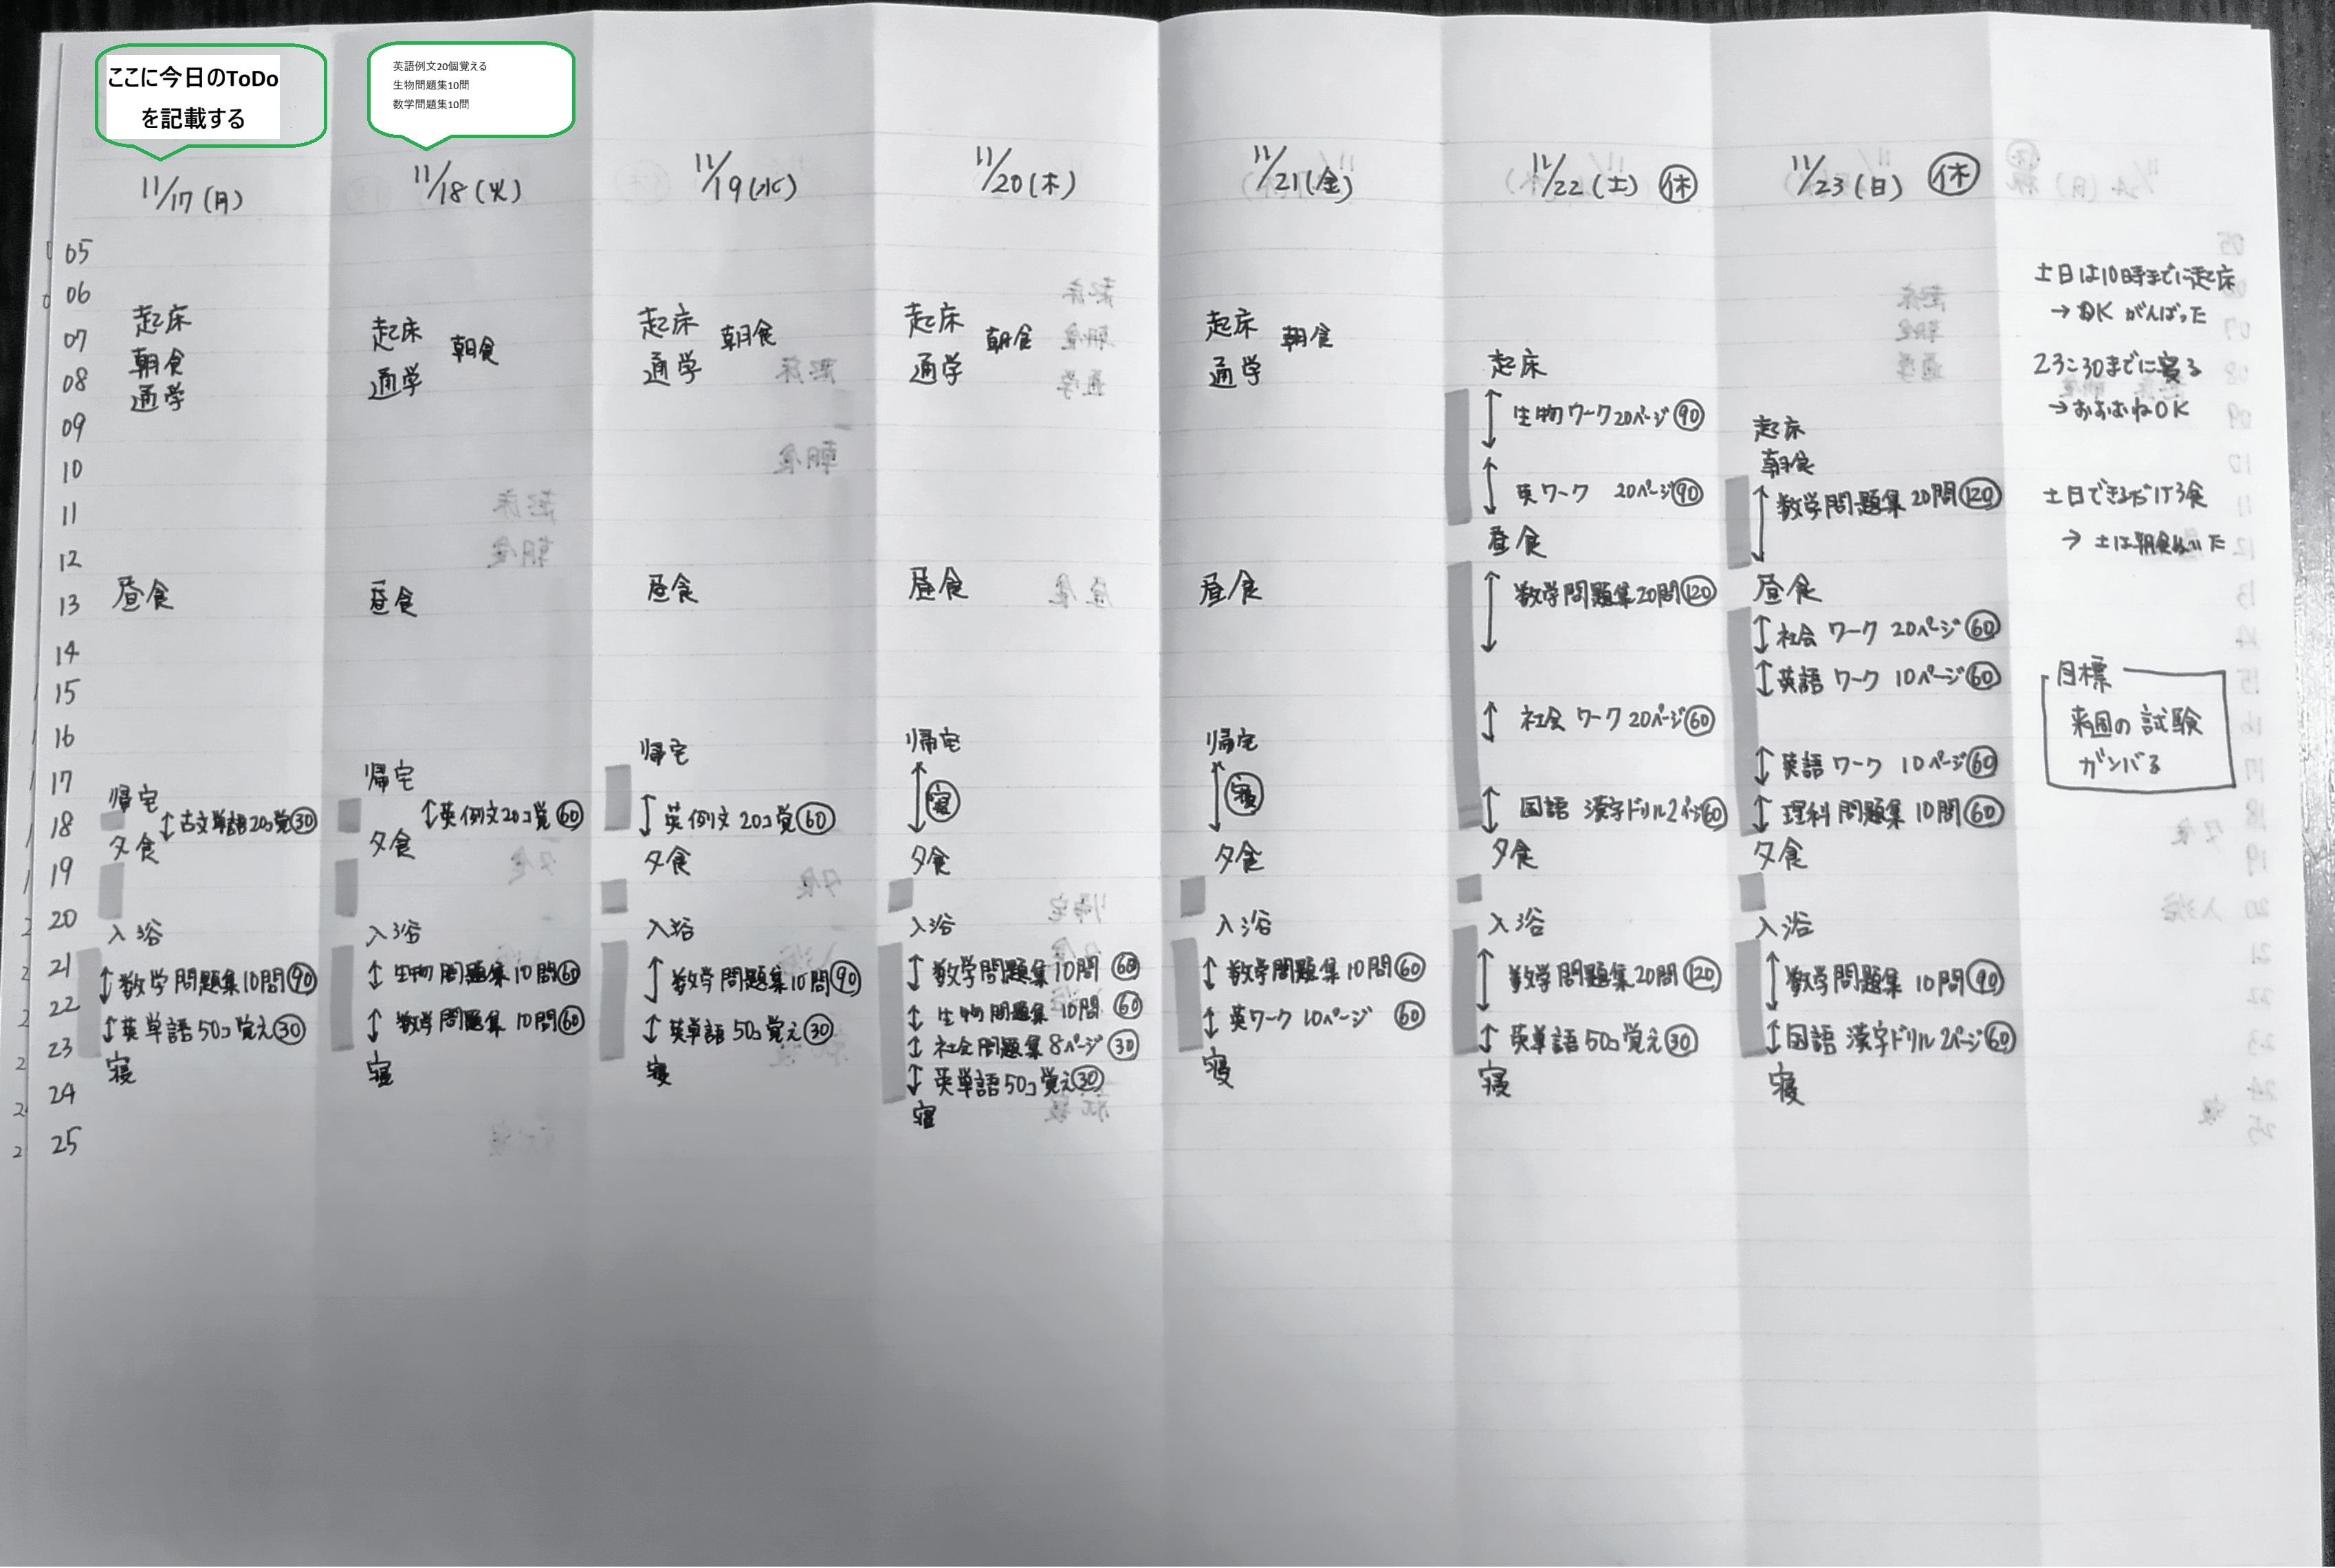 ここに今日のToDo
を記載する
英語例文20個覚える
生物問題集10問
数学問題集10問
11/17(月)
11/18(火)
11/19(水)
11/20(木)
11/21(金)
11/22(土) 休
11/23(日) 休
05
06
07
08
09
10
11
12
13
14
15
16
17
18
19
20
21
22
23
24
25
起床
朝食
通学
昼食
帰宅
古文単語20コ覚 30
夕食
入浴
数学問題集10問 90
英単語50コ覚え 30
寝
起床 朝食
通学
昼食
帰宅
英例文20コ覚 60
夕食
入浴
生物問題集10問 60
数学問題集10問 60
寝
起床 朝食
通学
昼食
帰宅
英例文20コ覚 60
夕食
入浴
数学問題集10問 90
英単語50コ覚え 30
寝
起床 朝食
通学
昼食
帰宅
寝
夕食
入浴
数学問題集10問 60
生物問題集10問 60
社会問題集8ページ 30
英単語50コ覚え 30
寝
起床 朝食
通学
昼食
帰宅
寝
夕食
入浴
数学問題集10問 60
英ワーク10ページ 60
寝
起床
生物ワーク20ページ 90
英ワーク 20ページ 90
昼食
数学問題集20問 120
社会ワーク20ページ 60
国語 漢字ドリル2ページ 60
夕食
入浴
数学問題集20問 120
英単語50コ覚え 30
寝
起床
朝食
数学問題集20問 120
昼食
社会ワーク 20ページ 60
英語ワーク 10ページ 60
英語ワーク 10ページ 60
理科問題集10問 60
夕食
入浴
数学問題集 10問 90
国語 漢字ドリル2ページ 60
寝
土日は10時までに起床
→OK がんばった
23:30までに寝る
→おおむねOK
土日できるだけ3食
→ 土は朝食ぬいた
目標
来週の試験
ガンバる